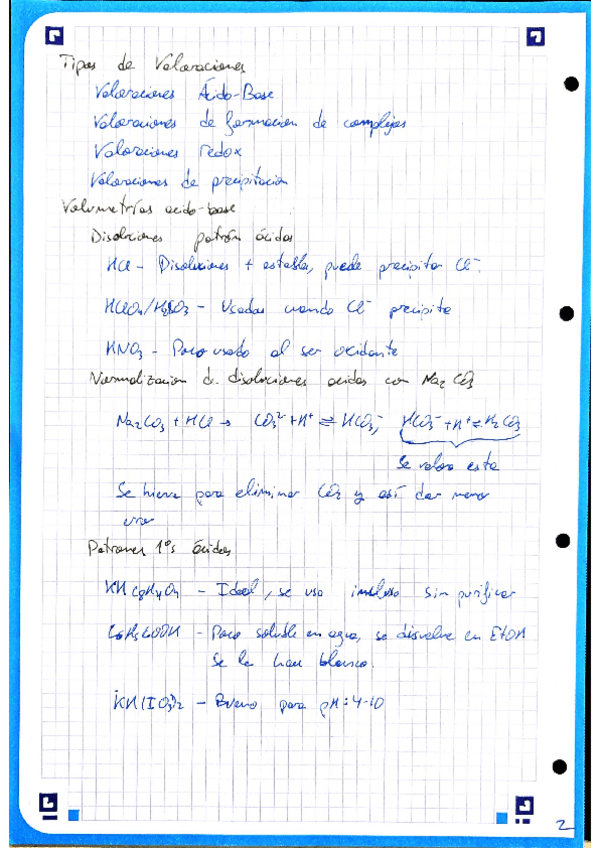 Tipos de Valoraciones
Valoraciones Ácido-Base
Valoraciones de formacion de complejos
Valoraciones redox
Valoraciones de precipitacion
Volumetrías acido-base
Disoluciones patrón ácidas
HCl - Disoluciones + estables, puede precipitar Cl⁻.
HClO₄/H₂SO₃ - Usadas cuando Cl⁻ precipite
HNO₃ - Poco usado al ser oxidante
Normalizacion de disoluciones acidas con Na₂CO₃
Na₂CO₃ + HCl → CO₃²⁻ + H⁺ ⇌ HCO₃⁻, HCO₃⁻ + H⁺ ⇌ H₂CO₃
Se valora esta
Se hierve para eliminar CO₂ y así dar menor
error
Patrones 1ºs ácidos
KHC₈H₄O₄ - Ideal, se usa incluso sin purificar
C₆H₅COOH - Poco soluble en agua, se disuelve en EtOH
Se le hace blanco.
KH(IO₃)₂ - Bueno para pH: 4-10
2